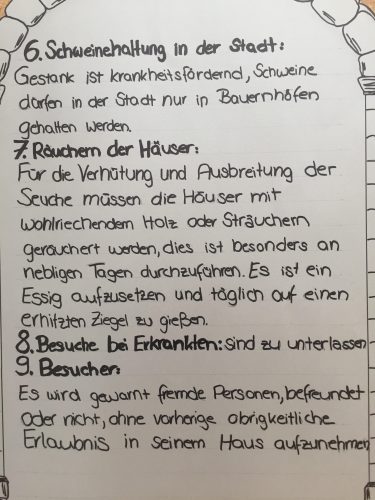 6. Schweinehaltung in der Stadt:
Gestank ist krankheitsfördernd, Schweine
dürfen in der Stadt nur in Bauernhöfen
gehalten werden.
7. Räuchern der Häuser:
Für die Verhütung und Ausbreitung der
Seuche müssen die Häuser mit
wohlriechendem Holz oder Sträuchern
geräuchert werden, dies ist besonders an
nebligen Tagen durchzuführen. Es ist ein
Essig aufzusetzen und täglich auf einen
erhitzten Ziegel zu gießen.
8. Besuche bei Erkrankten: sind zu unterlassen
9. Besucher:
Es wird gewarnt fremde Personen, befreundet
oder nicht, ohne vorherige obrigkeitliche
Erlaubnis in seinem Haus aufzunehmen